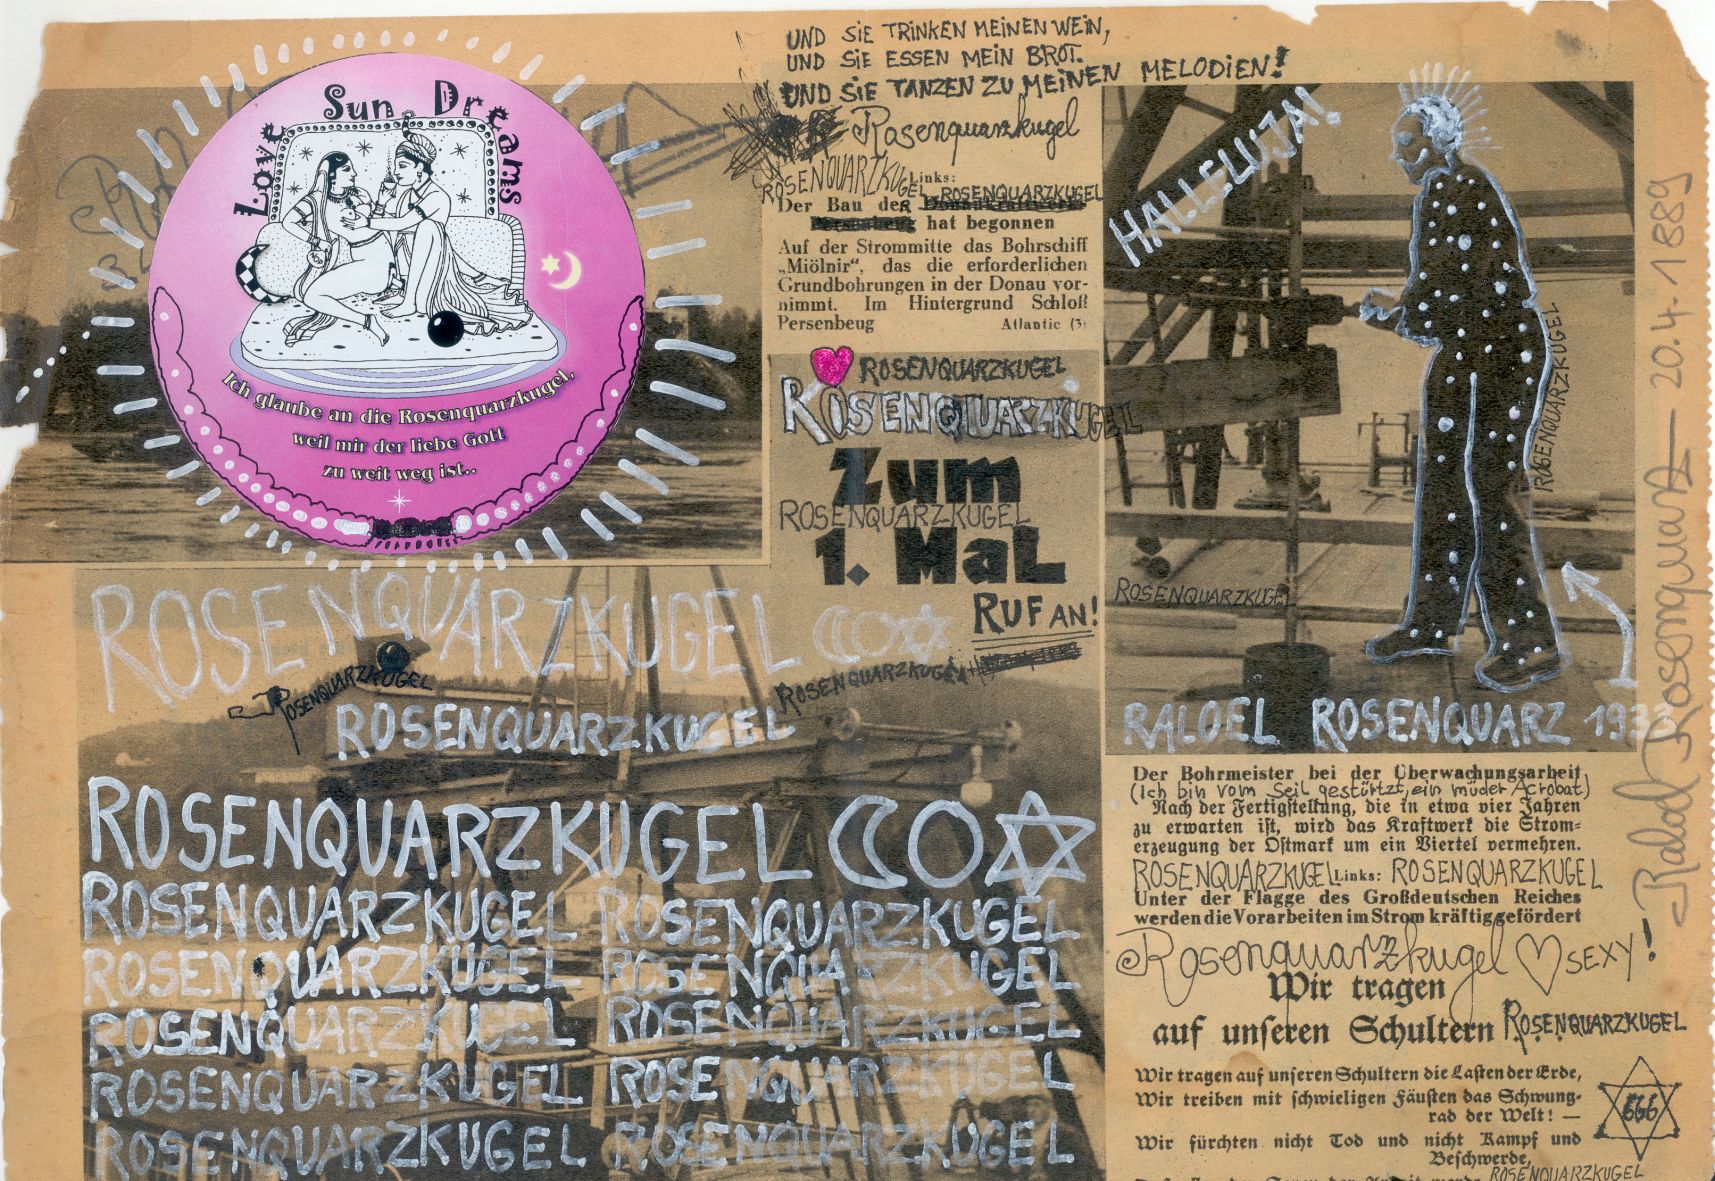 UND SIE TRINKEN MEINEN WEIN,
UND SIE ESSEN MEIN BROT.
UND SIE TANZEN ZU MEINEN MELODIEN!
Rosenquarzkugel
ROSENQUARZKUGEL
Links: ROSENQUARZKUGEL
Der Bau des
hat begonnen
Auf der Strommitte das Bohrschiff
„Miölnir“, das die erforderlichen
Grundbohrungen in der Donau vor-
nimmt. Im Hintergrund Schloß
Persenbeug Atlantic (3)
Love Sun Dreams
Ich glaube an die Rosenquarzkugel,
weil mir der liebe Gott
zu weit weg ist..
ROSENQUARZKUGEL
ROSENQUARZKUGEL
Zum
ROSENQUARZKUGEL
1. MaL
RUF AN!
HALLELUJA!
ROSENQUARZKUGEL
ROSENQUARZKUGEL
RALOEL ROSENQUARZ 193
Raloel Rosenquarz — 20.4.1889
ROSENQUARZKUGEL
ROSENQUARZKUGEL
ROSENQUARZKUGEL
ROSENQUARZKUGEL
ROSENQUARZKUGEL
ROSENQUARZKUGEL ROSENQUARZKUGEL
ROSENQUARZKUGEL ROSENQUARZKUGEL
ROSENQUARZKUGEL ROSENQUARZKUGEL
ROSENQUARZKUGEL ROSENQUARZKUGEL
ROSENQUARZKUGEL ROSENQUARZKUGEL
Der Bohrmeister bei der Überwachungsarbeit
(Ich bin vom Seil gestürtzt, ein müder Acrobat)
Nach der Fertigstellung, die in etwa vier Jahren
zu erwarten ist, wird das Kraftwerk die Strom-
erzeugung der Ostmark um ein Viertel vermehren.
ROSENQUARZKUGEL Links: ROSENQUARZKUGEL
Unter der Flagge des Großdeutschen Reiches
werden die Vorarbeiten im Strom kräftig gefördert
Rosenquarzkugel SEXY!
Wir tragen
auf unseren Schultern ROSENQUARZKUGEL
Wir tragen auf unseren Schultern die Lasten der Erde,
Wir treiben mit schwieligen Fäusten das Schwung-
rad der Welt! —
666
Wir fürchten nicht Tod und nicht Kampf und
Beschwerde,
ROSENQUARZKUGEL